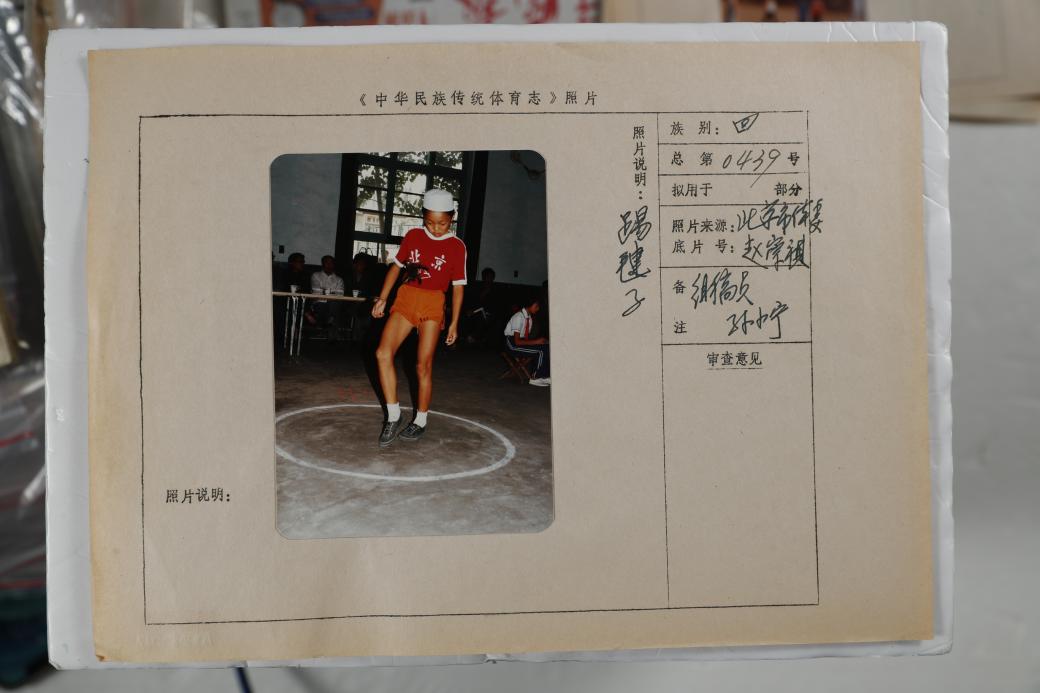 《中华民族传统体育志》照片
照片说明：
踢毽子
族别：回
总第0439号
拟用于 部分
照片来源：北京市体委
底片号：赵崇祺
备注 组稿员
孙小宁
审查意见
北京
照片说明：